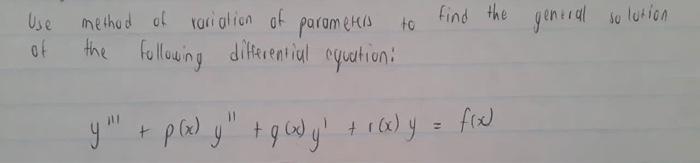 Use method of variation of parameters to find the general solution
of the following differential equation:
y''' + p(x) y'' + q(x) y' + r(x) y = f(x)